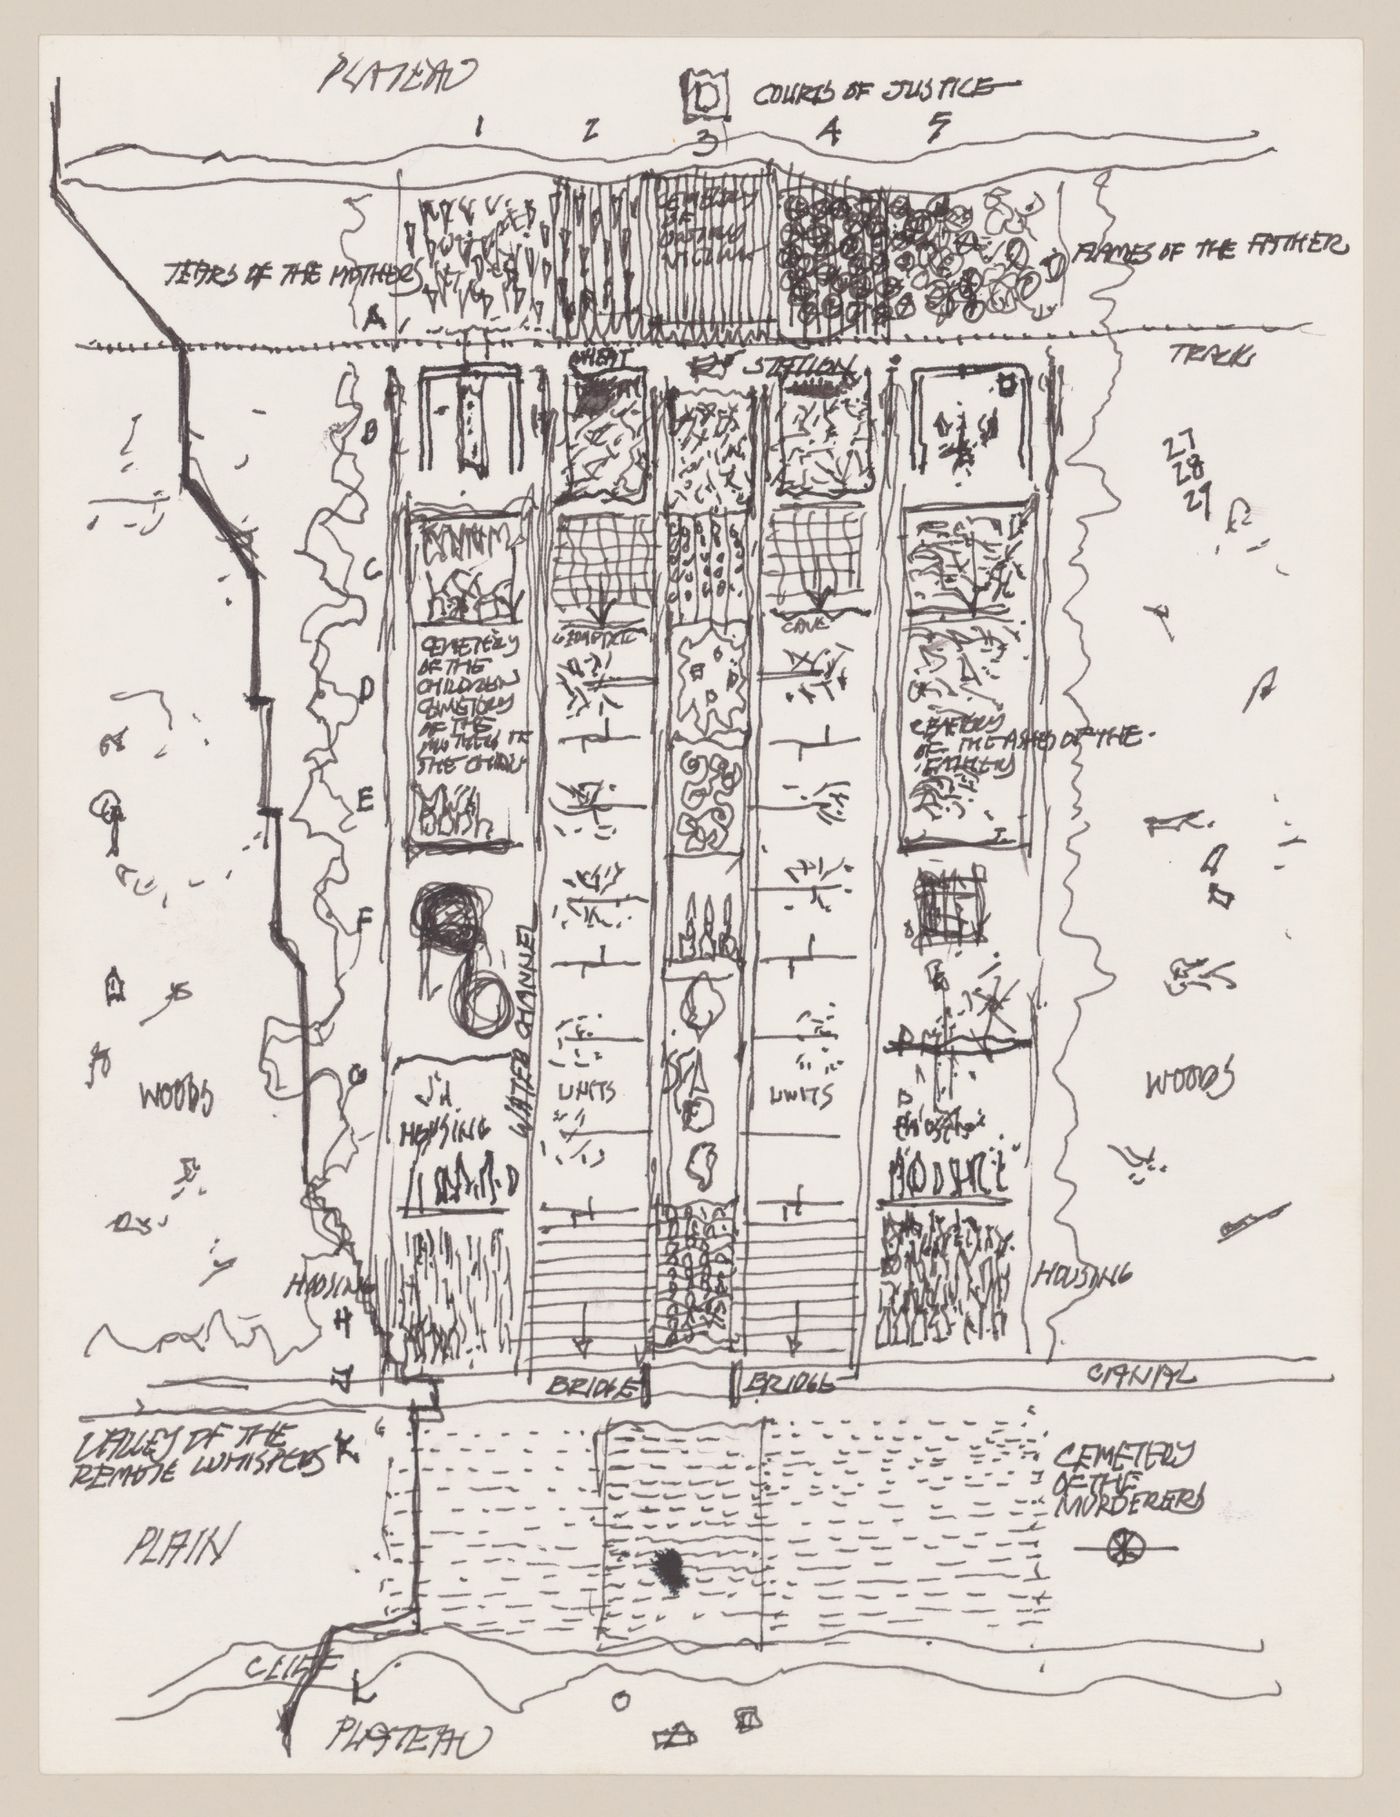 PLATEAU
COURTS OF JUSTICE
1 2 3 4 5
CEMETERY
OF
TEARS OF THE MOTHERS
FLAMES OF THE FATHER
A
TRACK
STATION
B
27
28
29
C
CAVE
CEMETERY
OF THE
CHILDREN
CEMETERY
OF THE
MOTHERS OF
THE CHILD
D
CEMETERY
OF THE ASHES OF THE
E
F
WATER CHANNEL
G
WOODS
UNITS
UNITS
WOODS
HOUSING
HOUSING
HOUSING
H
J
BRIDGE
BRIDGE
CANAL
VALLEY OF THE
REMOTE WHISPERS
K
CEMETERY
OF THE
MURDERERS
PLAIN
CLIFF
L
PLATEAU